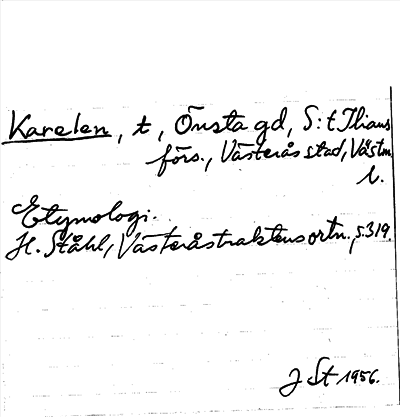 Karelen, t, Önsta gd, S:t Ilians
förs., Västerås stad, Västm.
l.
Etymologi.
H. Ståhl, Västeråstraktens ortn., s. 319.
J St 1956.